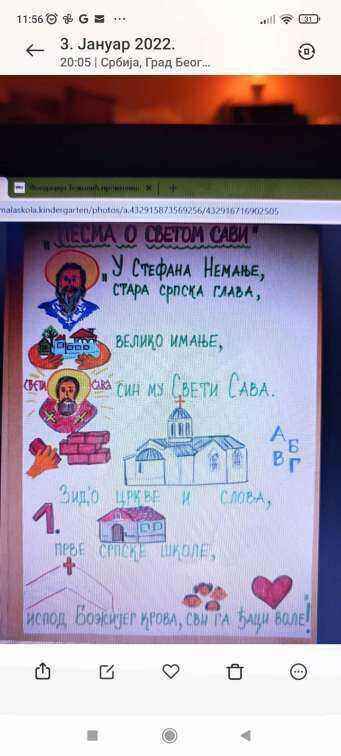 11:56
31
3. Јануар 2022.
20:05 | Србија, Град Беог...
malaskola.kindergarten/photos/a.432915873569256/432916716902505
"ПЕСМА О СВЕТОМ САВИ"
"У СТЕФАНА НЕМАЊЕ,
СТАРА СРПСКА ГЛАВА,
ВЕЛИКО ИМАЊЕ,
СВЕТИ САВА
СИН МУ СВЕТИ САВА.
А Б
В Г
ЗИД'О ЦРКВЕ И СЛОВА,
1.
ПРВЕ СРПСКЕ ШКОЛЕ,
ИСПОД БОЖИЈЕГ КРОВА, СВИ ГА ЂАЦИ ВОЛЕ!